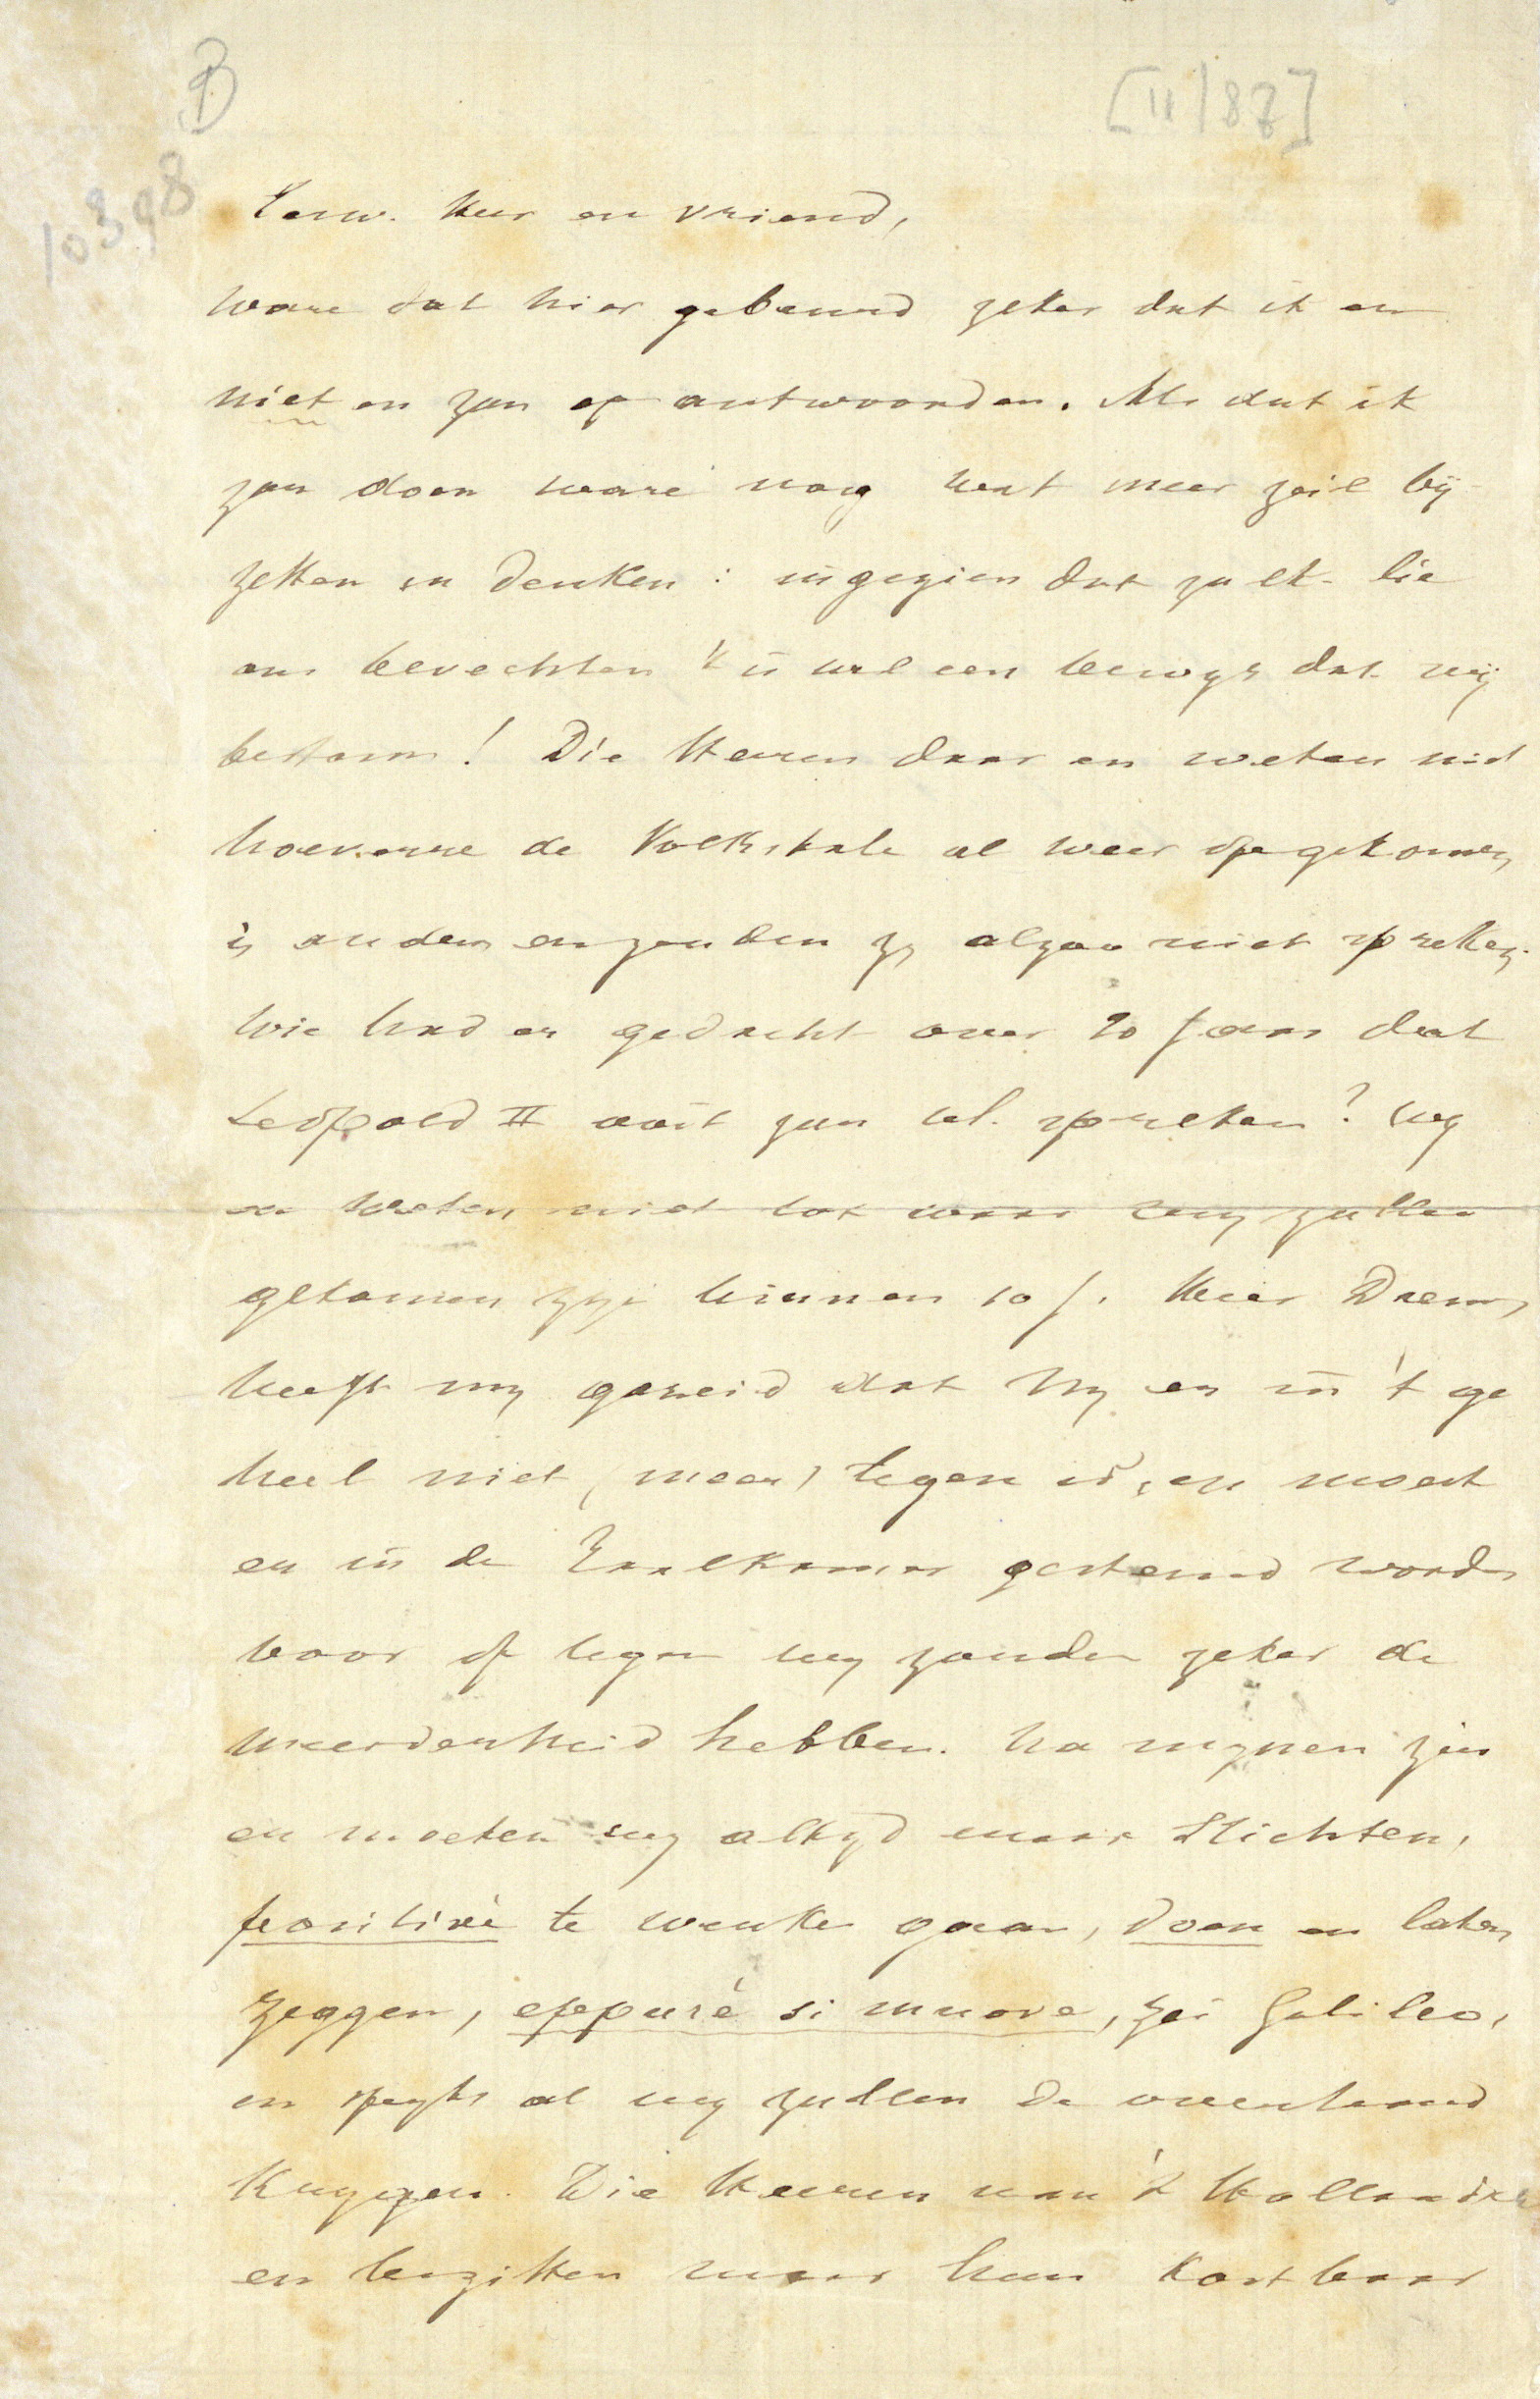 B
[11/87]
10398
Eerw. Heer en vriend,
Ware dat hier gebeurd zeker dat ik er
niet en zou op antwoorden. Als dat ik
zou doen ware nog wat meer zeil bij
zetten en denken: ingezien dat zulk- lie
ons bevechten 't is wel een bewys dat wij
bestaan! Die Heeren daar en weten niet
hoeverre de Volkstale al weer opgekomen
is anders en zouden zy alzoo niet spreken.
Wie had er gedacht over 20 jaar dat
Leopold II ooit zou vl. spreken? Wy
en weten niet tot waar wy zullen
gekomen zijn binnen 10 j. Heer Daems
heeft my gezeid dat hy er in 't ge
heel niet (meer) tegen is, en moest
er in de Taalkamer gestemd worden
voor of tegen wy zouden zeker de
meerderheid hebben. Na mynen zin
en moeten wy altyd maar stichten,
positivè te werke gaan, doen en laten
zeggen, eppurè si muove, zei Galileo,
en spyts al wy zullen de overhand
krygen. Die Heeren van 't Hollandsch
en bezitten maar hun kostbaar